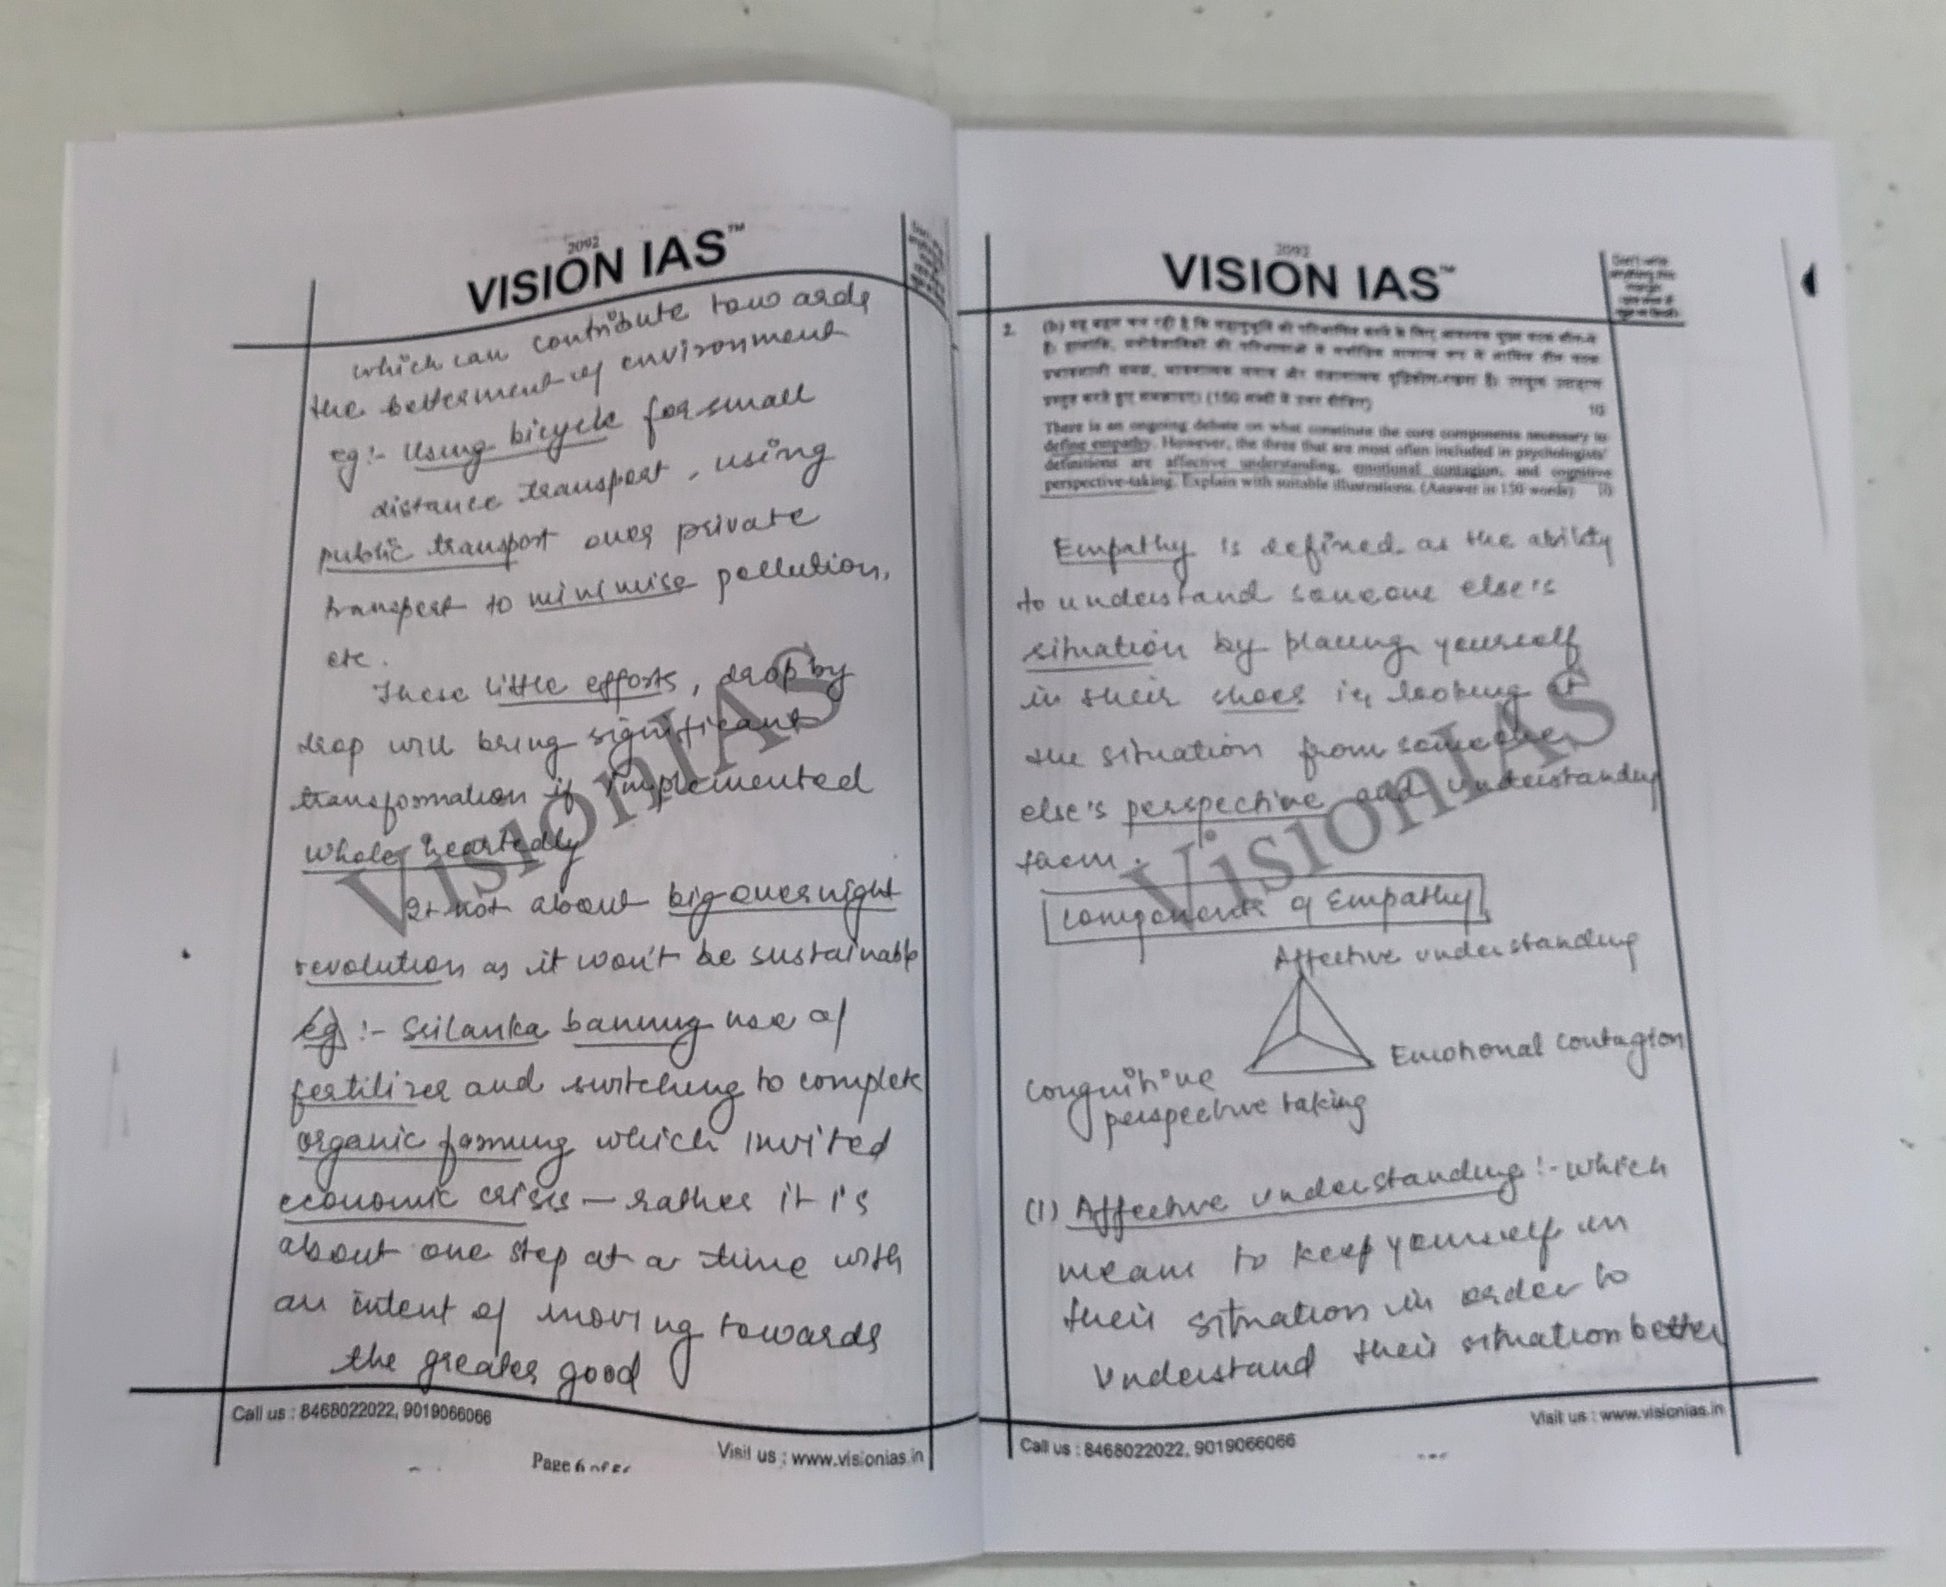 2092
VISION IAS™
which can contribute towards
the betterment of environment
eg:- Using bicycle for small
distance transport, using
public transport over private
transport to minimise pollution,
etc.
These little efforts, drop by
drop will bring significant
transformation if implemented
whole heartedly
It not about big overnight
revolution as it won't be sustainable
eg:- Srilanka banning use of
fertilizer and switching to complete
organic farming which invited
economic crisis — rather it is
about one step at a time with
an intent of moving towards
the greater good
VisionIAS
Call us : 8468022022, 9019066066
Page 6 of
Visit us : www.visionias.in
VISION IAS™
Don't write
anything this
margin
2. (b)
10
There is an ongoing debate on what constitute the core components necessary to
define empathy. However, the three that are most often included in psychologists'
definitions are affective understanding, emotional contagion, and cognitive
perspective-taking. Explain with suitable illustrations. (Answer in 150 words) 10
Empathy is defined as the ability
to understand someone else's
situation by placing yourself
in their shoes ie, looking at
the situation from someone
else's perspective and understanding
them.
Components of Empathy
Affective understanding
Emotional contagion
Congnitive
perspective taking
(1) Affective understanding:- which
means to keep yourself in
their situation in order to
understand their situation better
VisionIAS
Visit us : www.visionias.in
Call us : 8468022022, 9019066066